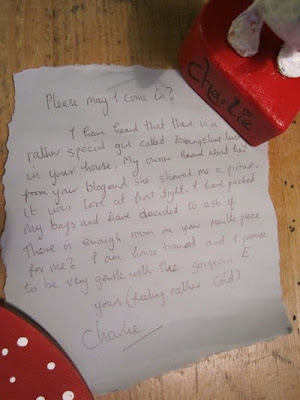 Charlie
Please may I come in?
I have heard that there is a
rather special girl called Evangeline lives
in your house. My owner heard about her
from your blog and she showed me a picture.
It was love at first sight. I have packed
my bags and have decided to ask if
There is enough room on your mantle piece
for me? I am house trained and I promise
to be very gentle with the gorgeous E
yours (feeling rather cold)
Charlie